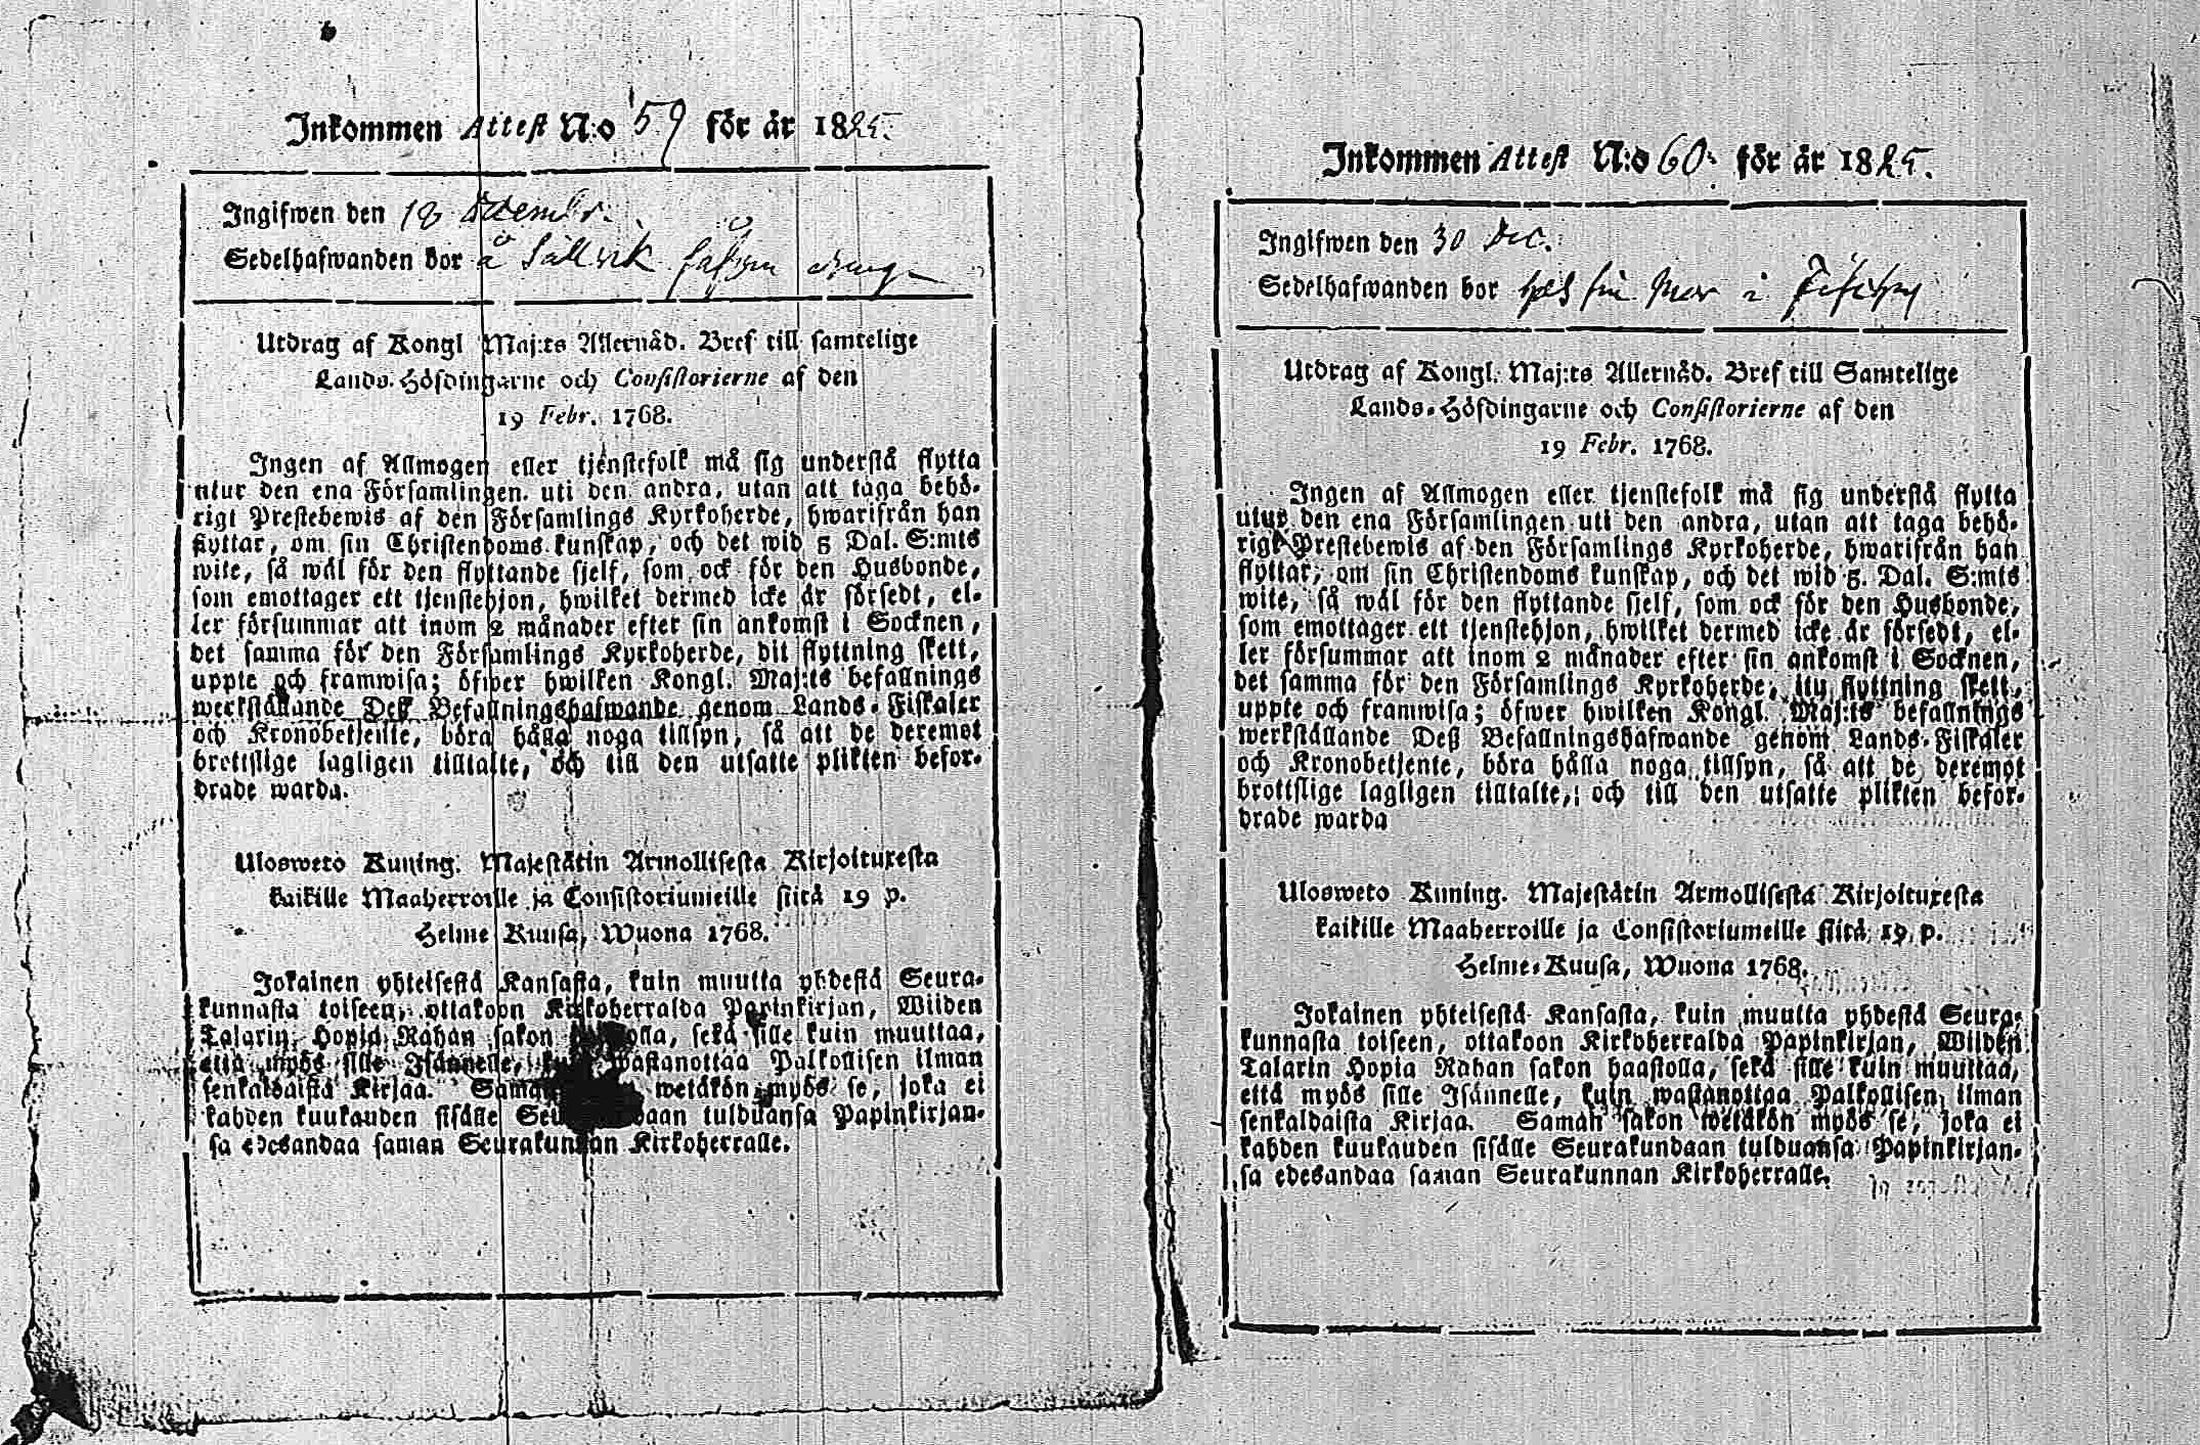 Inkommen Attest N:o 59 för år 1825.
Ingifwen den 18 decembr.
Sedelhafwanden bor å Sällvik
Utdrag af Kongl Maj:ts Allernåd. Bref till samtelige
Lands-Höfdingarne och Consistorierne af den
19 Febr. 1768.
Ingen af Allmogen eller tjenstefolk må sig understå flytta
utur den ena Församlingen uti den andra, utan att taga behö-
rigt Prestebewis af den Församlings Kyrkoherde, hwarifrån han
flyttar, om sin Christendoms kunskap, och det wid 5 Dal. S:mts
wite, så wäl för den flyttande sjelf, som ock för den Husbonde,
som emottager ett tjenstehjon, hwilket dermed icke är försedt, el-
ler försummar att inom 2 månader efter sin ankomst i Socknen,
det samma för den Församlings Kyrkoherde, dit flyttning skett,
uppte och framwisa; öfwer hwilken Kongl. Maj:ts befallnings
werkställande Deß Befallningshafwande genom Lands-Fiskaler
och Kronobetjente, böra hålla noga tillsyn, så att de deremot
brottslige lagligen tilltalte, och till den utsatte plikten befor-
drade warda.
Ulosweto Kuning. Majestätin Armollisesta Kirjoituxesta
kaikille Maaherroille ja Consistoriumeille siitä 19 p.
Helme Kuusa, Wuona 1768.
Jokainen yhteisestä Kansasta, kuin muutta yhdestä Seura-
kunnasta toiseen, ottakoon Kirkoherralda Papinkirjan, Wiiden
Talarin Hopia Rahan sakon haastolla, sekä sille kuin muuttaa,
että myös sille Isännelle, kuin wastanottaa Palkollisen ilman
senkaldaista Kirjaa. Saman wetäkön myös se, joka ei
kahden kuukauden sisälle Seurakundaan tulduansa Papinkirjan-
sa edesandaa saman Seurakunnan Kirkoherralle.
Inkommen Attest N:o 60. för år 1825.
Ingifwen den 30 Dec.
Sedelhafwanden bor hos sin Mor i
Utdrag af Kongl. Maj:ts Allernåd. Bref till Samtelige
Lands-Höfdingarne och Consistorierne af den
19 Febr. 1768.
Ingen af Allmogen eller tjenstefolk må sig understå flytta
utur den ena Församlingen uti den andra, utan att taga behö-
rigt Prestebewis af den Församlings Kyrkoherde, hwarifrån han
flyttar, om sin Christendoms kunskap, och det wid 5. Dal. S:mts
wite, så wäl för den flyttande sjelf, som ock för den Husbonde,
som emottager ett tjenstehjon, hwilket dermed icke är försedt, el-
ler försummar att inom 2 månader efter sin ankomst i Socknen,
det samma för den Församlings Kyrkoherde, flyttning skett,
uppte och framwisa; öfwer hwilken Kongl. Maj:ts befallnings
werkställande Deß Befallningshafwande genom Lands-Fiskaler
och Kronobetjente, böra hålla noga tillsyn, så att de deremot
brottslige lagligen tilltalte, och till den utsatte plikten befor-
drade warda
Ulosweto Kuning. Majestätin Armollisesta Kirjoituxesta
kaikille Maaherroille ja Consistoriumeille siitä 19 p.
Helme-Kuusa, Wuona 1768.
Jokainen yhteisestä Kansasta, kuin muutta yhdestä Seura-
kunnasta toiseen, ottakoon Kirkoherralda Papinkirjan, Wiiden
Talarin Hopia Rahan sakon haastolla, sekä sille kuin muuttaa,
että myös sille Isännelle, kuin wastanottaa Palkollisen ilman
senkaldaista Kirjaa. Saman sakon wetäkön myös se, joka ei
kahden kuukauden sisälle Seurakundaan tulduansa Papinkirjan-
sa edesandaa saman Seurakunnan Kirkoherralle.